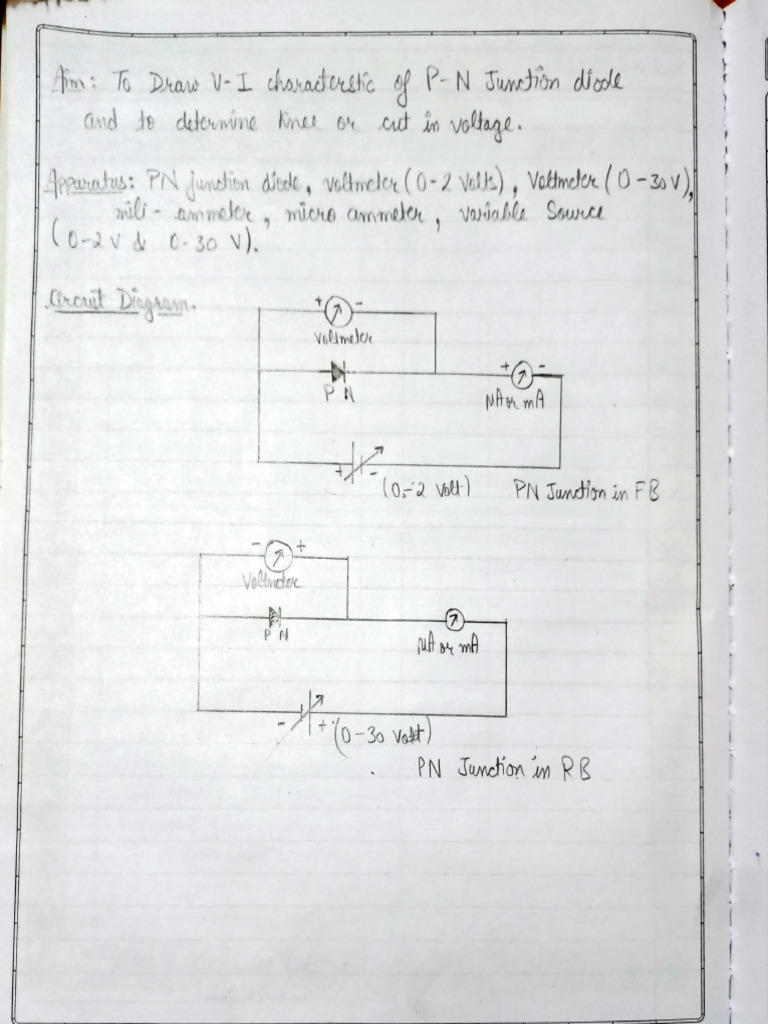 Aim: To Draw V-I characterstic of P-N Junction diode
and to determine knee or cut in voltage.
Apparatus: PN junction diode, voltmeter (0-2 Volts), Voltmeter (0-30V),
mili-ammeter, micro ammeter, variable Source
(0-2 V & 0-30 V).
Circuit Diagram.
+ -
Voltmeter
+ -
P N
μA or mA
+ -
(0-2 Volt) PN Junction in FB
- +
Voltmeter
P N
μA or mA
- +
(0-30 Volt)
PN Junction in RB